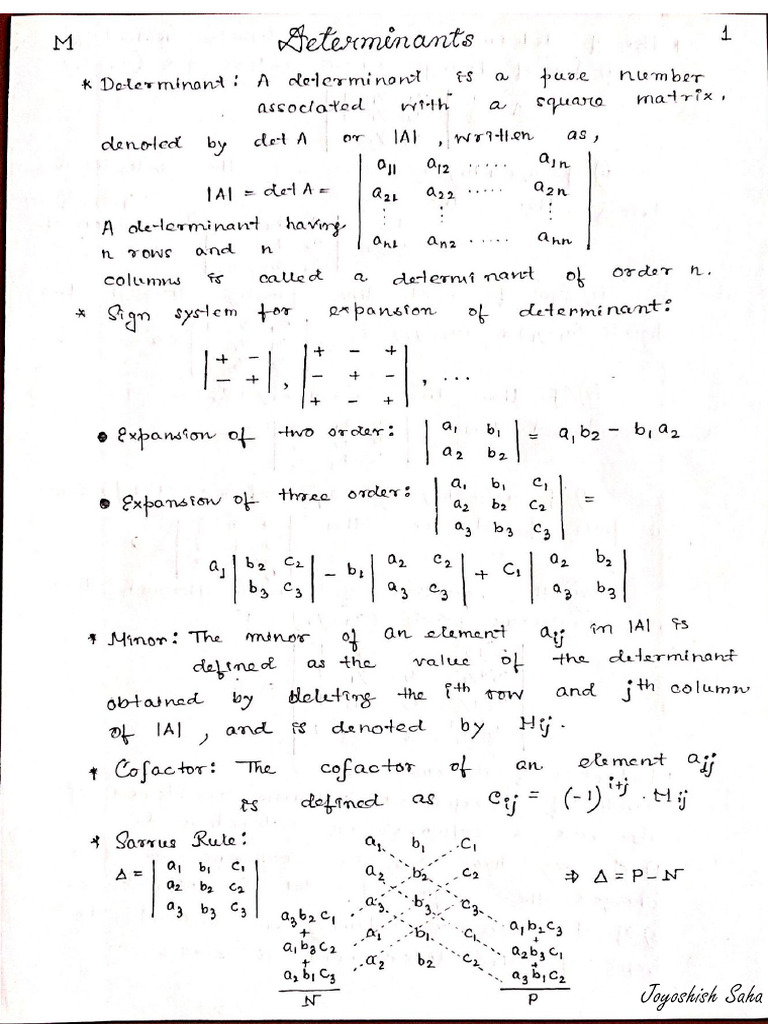 M Determinants 1
* Determinant: A determinant is a pure number
associated with a square matrix.
denoted by det A or |A|, written as,
|A| = det A = | a11 a12 ..... a1n |
| a21 a22 ..... a2n |
| ⋮ ⋮ ⋮ |
| an1 an2 ..... ann |
A determinant having
n rows and n
columns is called a determinant of order n.
* Sign system for expansion of determinant:
| + - | , | + - + | , ...
| - + | | - + - |
| + - + |
• Expansion of two order: | a1 b1 | = a1b2 - b1a2
| a2 b2 |
• Expansion of three order: | a1 b1 c1 | =
| a2 b2 c2 |
| a3 b3 c3 |
a1 | b2 c2 | - b1 | a2 c2 | + c1 | a2 b2 |
| b3 c3 | | a3 c3 | | a3 b3 |
* Minor: The minor of an element aij in |A| is
defined as the value of the determinant
obtained by deleting the ith row and jth column
of |A|, and is denoted by Mij.
* Cofactor: The cofactor of an element aij
is defined as cij = (-1)^i+j . Mij
* Sarrus Rule:
Δ = | a1 b1 c1 |
| a2 b2 c2 |
| a3 b3 c3 |
a1 b1 c1
a2 b2 c2
a3 b3 c3
a1 b1 c1
a2 b2 c2
⇒ Δ = P - N
a3b2c1
+
a1b3c2
+
a2b1c3
N
a1b2c3
+
a2b3c1
+
a3b1c2
P
Joyoshish Saha